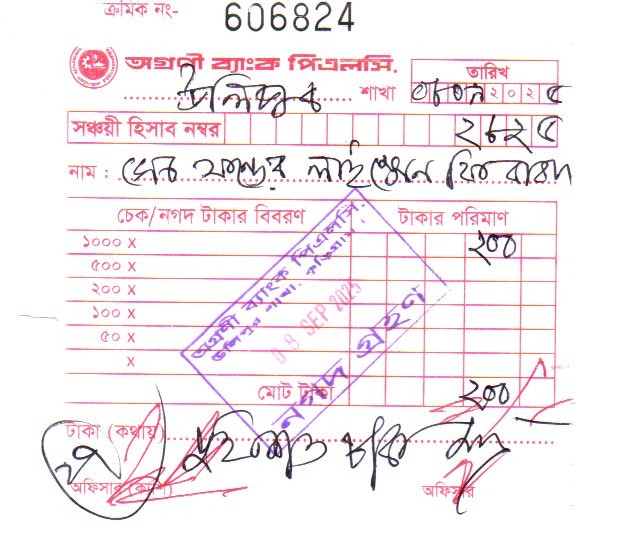 ক্রমিক নং- 606824
অগ্রণী ব্যাংক পিএলসি.
উলিপুর শাখা
তারিখ
০৮০৯২০২৫
সঞ্চয়ী হিসাব নম্বর ২৮২৫
নাম : লাইসেন্স ফি বাবদ
চেক/নগদ টাকার বিবরণ টাকার পরিমাণ
১০০০ X ২০০
৫০০ X
২০০ X
১০০ X
৫০ X
X
মোট টাকা ২০০
অগ্রণী ব্যাংক পিএলসি.
উলিপুর শাখা, কুড়িগ্রাম।
08 SEP 2025
নগদ গ্রহণ
টাকা (কথায়) দুইশত টাকা মাত্র
অফিসার (ক্যাশ) অফিসার